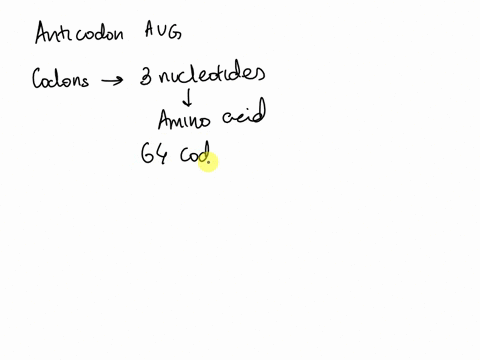 Anticodon AUG
Codons → 3 nucleotides
↓
Amino acid
64 cod